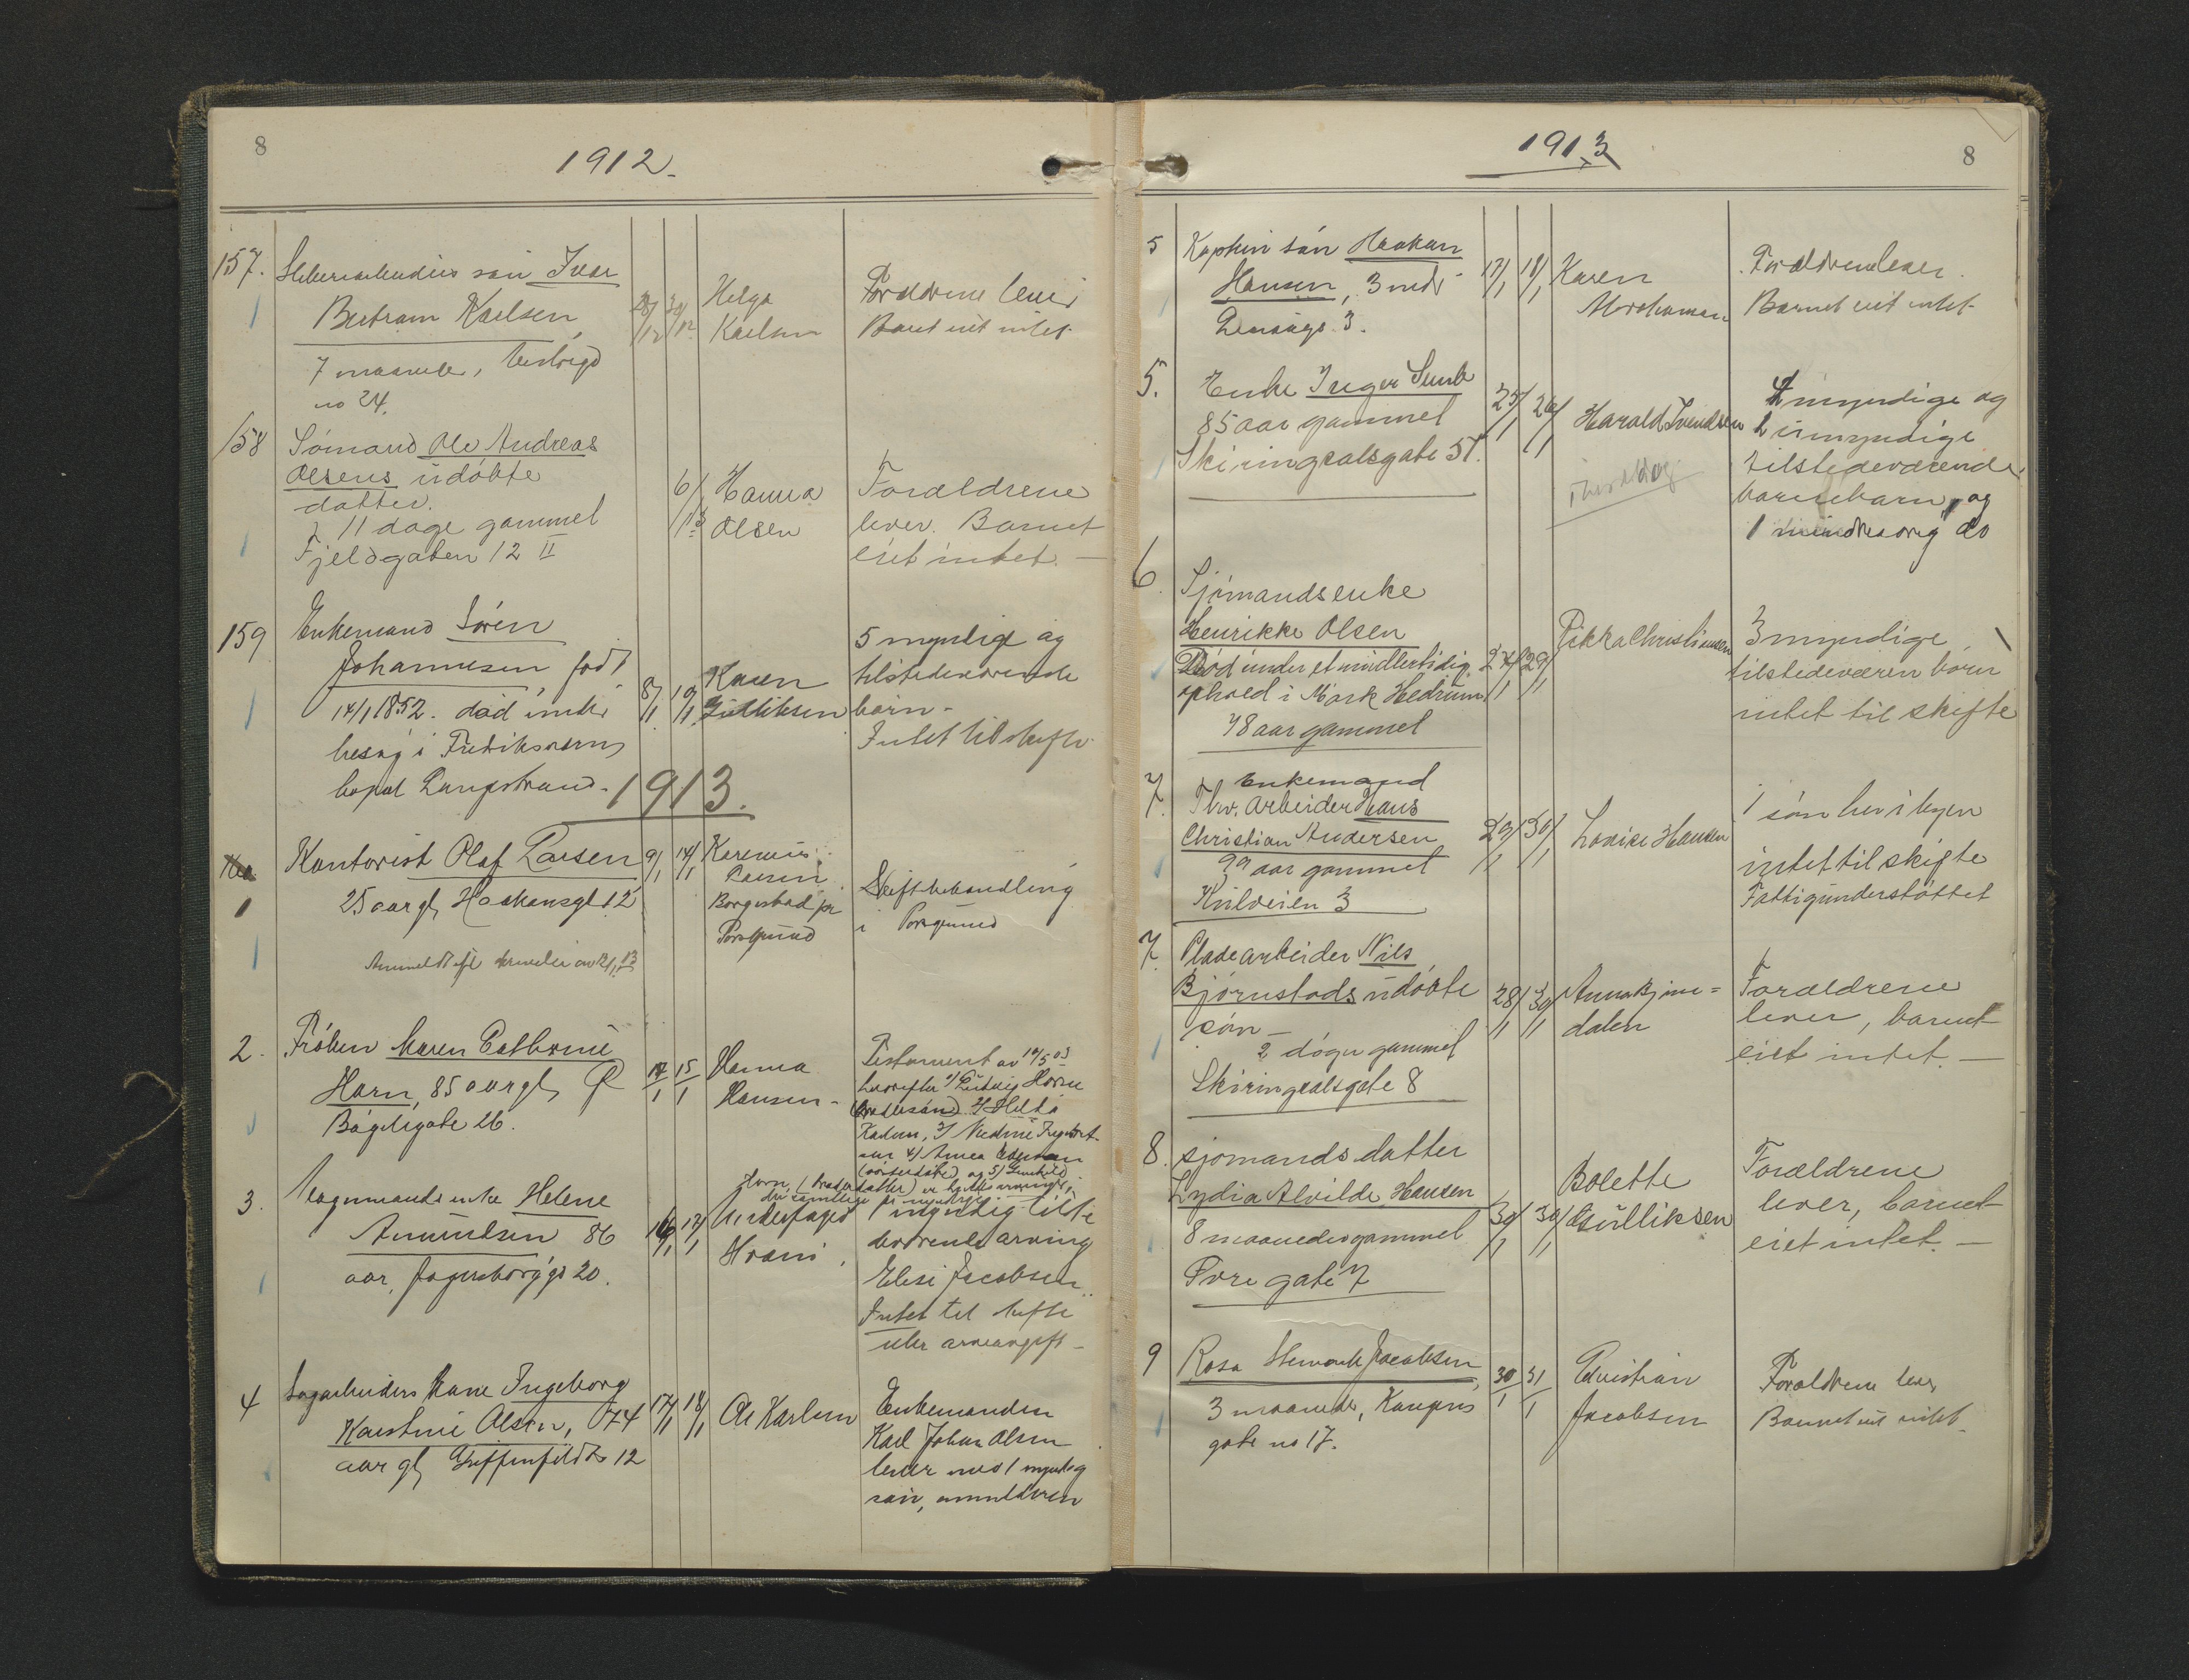 8
1912.
157.
sön Ivar
Bertram Karlsen
7 maaneder,
no 24.
28/12
30/12
Helga
Karlsen
Forældrene lever
Barnet eiet intet.
158
Sömand Ole Andreas
Olsens udöbte
datter.
11 dage gammel
Fjeldgaten 12 II
6/1 13
Hanna
Olsen
Forældrene
lever. Barnet
eiet intet. —
159
Enkemand Sören
Johannesen född
14/1 1852. död under
besøg i Fredriksværn
bopæl Langestrand.
8/1
10/1
Karen
Gulliksen
5 myndige og
tilstedeværende
börn.
Intet til skifte
1913.
1
Kontorist Olaf Larsen
25 aar gl, Haakonsgt 12
Anmeldt efter av 13
9/1
14/1
Larsen
Borgestad pr
Porsgrund
Skiftebehandling
i Porsgrund
2.
Fröken Maren Cathrine
Horn, 85 aar gl,
Bögeligate 26.
14/1
15/1
Hanna
Hansen
Testament av 10/5 03
hvorefter 1) Ludvig Horn
(brodersön) 2)
3)
4) Anna
(söster) og 5)
Horn, (broderdatter) er
de samtlige er myndige
3.
enke Helene
Amundsen 86
aar, Jegersborggt 20.
16/1
17/1
Underfoged
Hvam
1 myndig tilste
deværende arving
Elise Jacobsen.
Intet til skifte
eller arveavgift —
4
Sagarbeiders kone Ingeborg
Karstine Olsen, 74
aar gl, Griffenfeldts 12
17/1
18/1
Ole Karlsen
Enkemanden
Karl Johan Olsen
lever med 1 myndig
sön,
1913
8
5
Kaptein sön Haakon
Hansen, 3 mdr
3.
17/1
18/1
Karen
Abrahamsen
Forældrene lever.
Barnet eiet intet
5.
Enke Inger Sunde
85 aar gammel
Skiringsalsgate 51.
25/1
26/1
Harald Svendsen
4 myndige og
umyndige
tilstedeværende
barnebarn, og
1 mindreaarig do
6
Sjömandsenke
Henrikke Olsen
Död under et midlertidig
ophold i Mörk Hedrum
48 aar gammel
27/1
29/1
Rikka Christiansen
3 myndige
tilstedeværen börn
intet til skifte
7.
Enkemand
Fhv. Arbeider Hans
Christian Andersen
79 aar gammel
Kilveien 3
29/1
30/1
Lovise Hansen
1 sön her i byen
intet til skifte
Fattigunderstöttet
7
Pladearbeider Nils
Björnstads udöbte
sön —
2 dögn gammel
Skiringsalsgate 8
28/1
30/1
Anna Bjöne=
dalen
Forældrene
lever, barnet
eiet intet. —
8.
sjömands datter
Lydia Alvilde Hansen
8 maaneder gammel
Övre gate 7
30/1
30/1
Bolette
Gulliksen
Forældrene
lever, barnet
eiet intet. —
9
Rosa Jacobsen,
3 maaneder, Kongens
gate no 17.
30/1
31/1
Christian
Jacobsen
Forældrene lever
Barnet eiet intet.